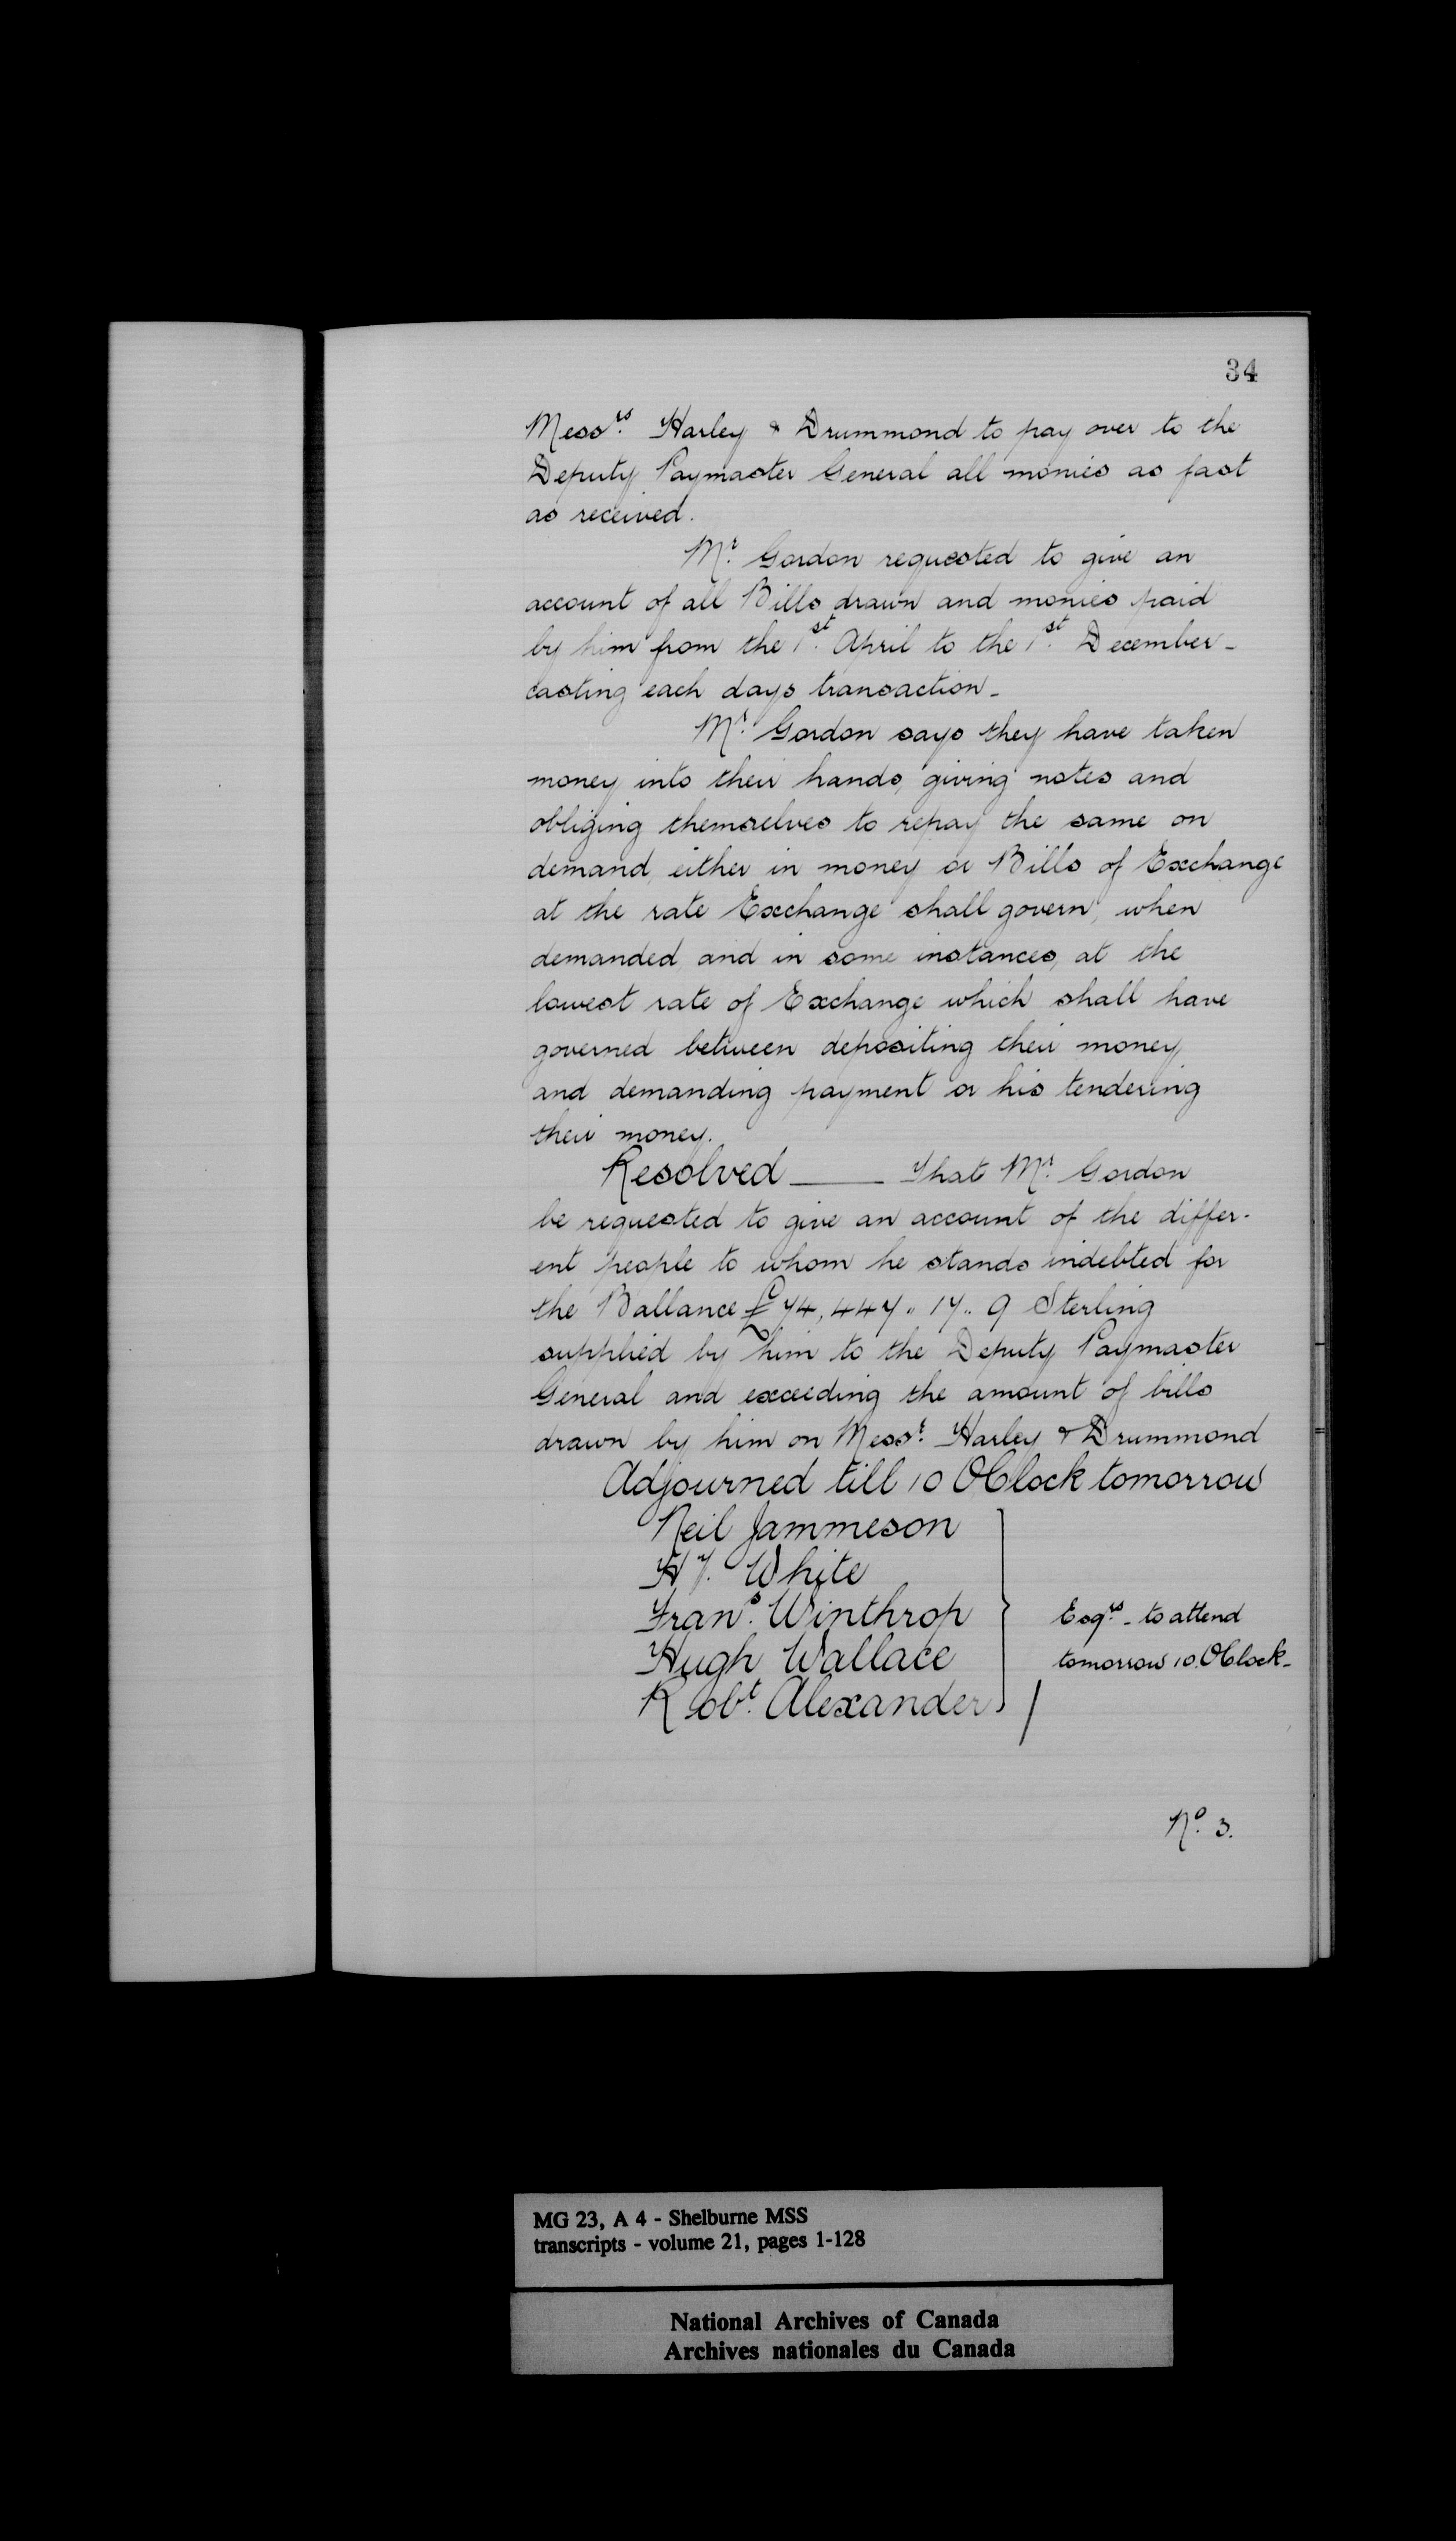 34
Mess.rs Harley & Drummond to pay over to the
Deputy Paymaster General all monies as fast
as received.
Mr. Gordon requested to give an
account of all Bills drawn and monies paid
by him from the 1st. April to the 1st. December -
casting each days transaction -
Mr. Gordon says they have taken
money into their hands, giving notes and
obliging themselves to repay the same on
demand, either in money or Bills of Exchange
at the rate Exchange shall govern, when
demanded, and in some instances, at the
lowest rate of Exchange which shall have
governed between depositing their money,
and demanding payment or his tendering
their money.
Resolved ——— That Mr. Gordon
be requested to give an account of the differ-
ent people to whom he stands indebted for
the Ballance £74,447 " 17 " 9 Sterling
supplied by him to the Deputy Paymaster
General and exceeding the amount of bills
drawn by him on Mess.r Harley & Drummond
Adjourned till 10 OClock tomorrow
Neil Jammeson
Hy. White
Frans. Winthrop
Esqrs - to attend
Hugh Wallace
tomorrow 10. OClock -
Robt. Alexander
No. 3.
MG 23, A 4 - Shelburne MSS
transcripts - volume 21, pages 1-128
National Archives of Canada
Archives nationales du Canada